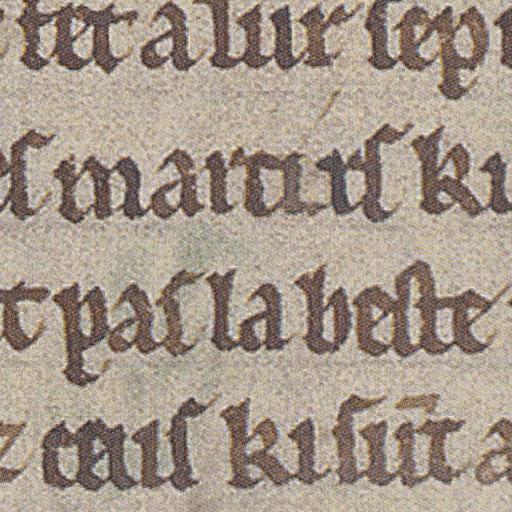 fet a lur sep
es martirs ki
t pas la beste
z ceus ki sūt a